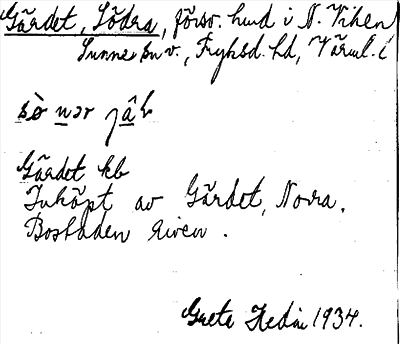 Gärdet, Södra, försv. hmd i N. Viken
Sunne sn v., Fryksd. hd, Värml. l
sö̀ nər jâḷ
Gärdet kb
Inköpt av Gärdet, Norra.
Bostaden riven.
Greta Hedin 1934.